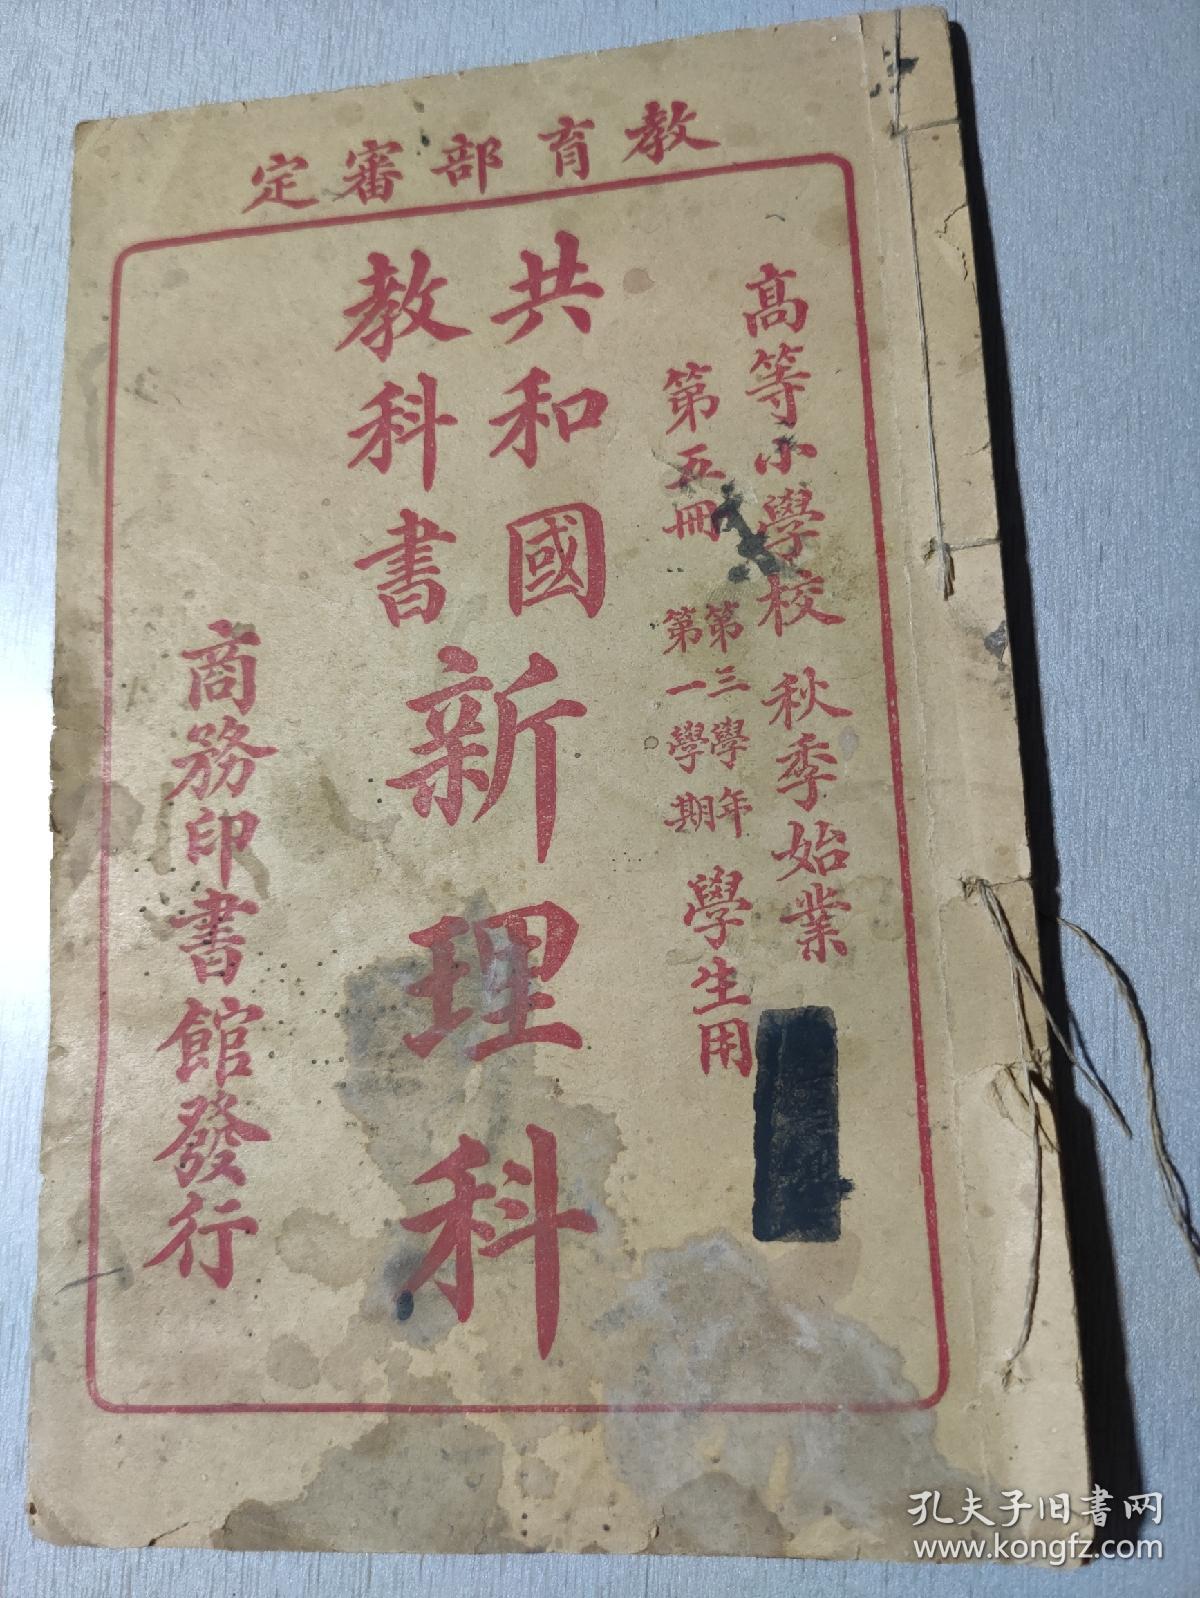 教育部審定
高等小學校 秋季始業
第五冊 第三學年 第一學期 學生用
共和國
教科書
新理科
商務印書館發行
孔夫子旧书网
www.kongfz.com